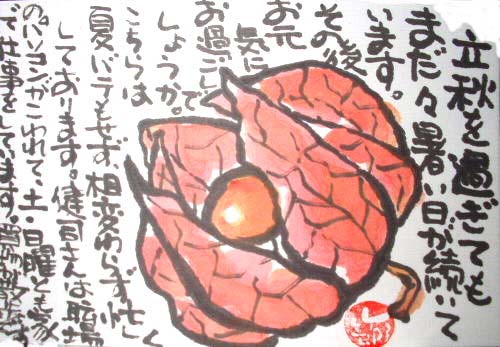 立秋を過ぎても
まだ々暑い日が続いて
います。
その後
お元
気に
お過ごしで
しょうか。
こちらは
夏バテもせず、相変わらず忙しく
しております。健司さんは職場
のパソコンがこわれて、土・日曜とも家
で仕事をしています。